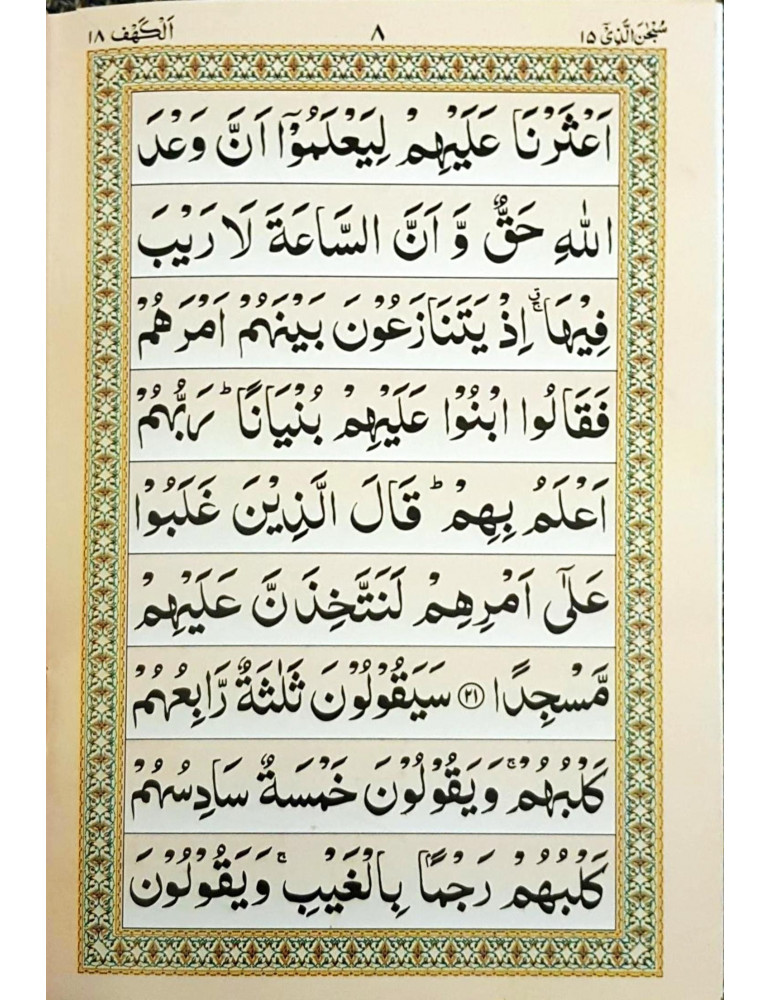 سُبْحٰنَ الَّذِیْۤ ١٥ ٨ اَلْكَهْف ١٨
اَعْثَرْنَا عَلَیْهِمْ لِیَعْلَمُوْۤا اَنَّ وَعْدَ
اللّٰهِ حَقٌّ وَّ اَنَّ السَّاعَةَ لَا رَیْبَ
فِیْهَا ۚۗ اِذْ یَتَنَازَعُوْنَ بَیْنَهُمْ اَمْرَهُمْ
فَقَالُوا ابْنُوْا عَلَیْهِمْ بُنْیَانًا ؕ رَبُّهُمْ
اَعْلَمُ بِهِمْ ؕ قَالَ الَّذِیْنَ غَلَبُوْا
عَلٰۤی اَمْرِهِمْ لَنَتَّخِذَنَّ عَلَیْهِمْ
مَّسْجِدًا ٢١ سَیَقُوْلُوْنَ ثَلٰثَةٌ رَّابِعُهُمْ
كَلْبُهُمْ ۚ وَیَقُوْلُوْنَ خَمْسَةٌ سَادِسُهُمْ
كَلْبُهُمْ رَجْمًۢا بِالْغَیْبِ ۚ وَیَقُوْلُوْنَ